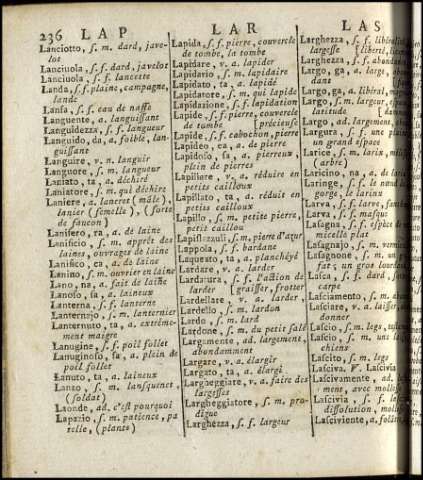 236 LAP LAR LAS
Lanciotto, s. m. dard, jave-
lot
Lanciuola, s. f. dard, javelot
Lanciuola, s. f. lancette
Landa, s. f. plaine, campagne,
lande
Lansa, s. f. eau de naffe
Languente, a. languissant
Languidezza, s. f. langueur
Languido, da, a. foible, lan-
guissant
Languire, v. n. languir
Languore, s. m. langueur
Laniato, ta, a. déchiré
Laniatore, s. m. qui déchire
Laniere, a. laneret (mâle),
lanier (femelle), (sorte
de faucon)
Lanifero, ra, a. de laine
Lanificio, s. m. apprêt des
laines, ouvrages de laine
Lanifico, ca, a. de laine
Lanino, s. m. ouvrier en laine
Lano, na, a. fait de laine
Lanoso, sa, a. laineux
Lanterna, s. f. lanterne
Lanternajo, s. m. lanternier
Lanternuto, ta, a. extrême-
ment maigre
Lanugine, s. f. poil follet
Lanuginoso, sa, a. plein de
poil follet
Lanuto, ta, a. laineux
Lanzo, s. m. lansquenet,
(soldat)
Laonde, ad. c'est pourquoi
Lapazio, s. m. patience, pa-
relle, (plante)
Lapida, s. f. pierre, couvercle
de tombe, la tombe
Lapidare, v. a. lapider
Lapidario, s. m. lapidaire
Lapidato, ta, a. lapidé
Lapidatore, s. m. qui lapide
Lapidazione, s. f. lapidation
Lapide, s. f. pierre, couvercle
de tombe [précieuse
Lapide, s. f. cabochon, pierre
Lapideo, ea, a. de pierre
Lapidoso, sa, a. pierreux,
plein de pierres
Lapillare, v. a. réduire en
petits cailloux
Lapillato, ta, a. réduit en
petits cailloux
Lapillo, s. m. petite pierre,
petit caillou
Lapislazzuli, s. m. pierre d'azur
Lappola, s. f. bardane
Laqueato, ta, a. planchéyé
Lardare, v. a. larder
Lardatura, s. f. l'action de
larder [graisser, frotter
Lardellare, v. a. larder,
Lardello, s. m. lardon
Lardo, s. m. lard
Lardone, s. m. du petit salé
Largamente, ad. largement,
abondamment
Largare, v. a. élargir
Largato, ta, a. élargi
Largheggiare, v. a. faire des
largesses
Largheggiatore, s. m. pro-
digue
Larghezza, s. f. largeur
Larghezza, s. f. libéralité
largesse [liberté
Larghezza, s. f. abondance
Largo, ga, a. large,
dant
Largo, ga, a. libéral,
Largo, s. m. largeur, espace
latitude [dant
Largo, ad. largement,
Largura, s. f. une plaine
un grand espace
Larice, s. m. larix,
(arbre)
Laricino, na, a. de
Laringe, s. f. le nœud
gorge, le larinx
Larva, s. f. larve,
Larva, s. f. masque
Lasagna, s. f. espèce de
micelli plat
Lasagnajo, s. m. vermicelier
Lasagnone, s. m. un
fat; un gros lourdaud
Lasca, s. f. dard,
carpe
Lasciamento, s. m.
Lasciare, v. a. laisser,
donner
Lascio, s. m. legs,
Lascio, s. m. une
chiens
Lascito, s. m. legs
Lasciva. V. Lascivia
Lascivamente, ad.
ment, avec mollesse
Lascivia, s. f.
dissolution, mollesse
Lasciviente, a. folâtre